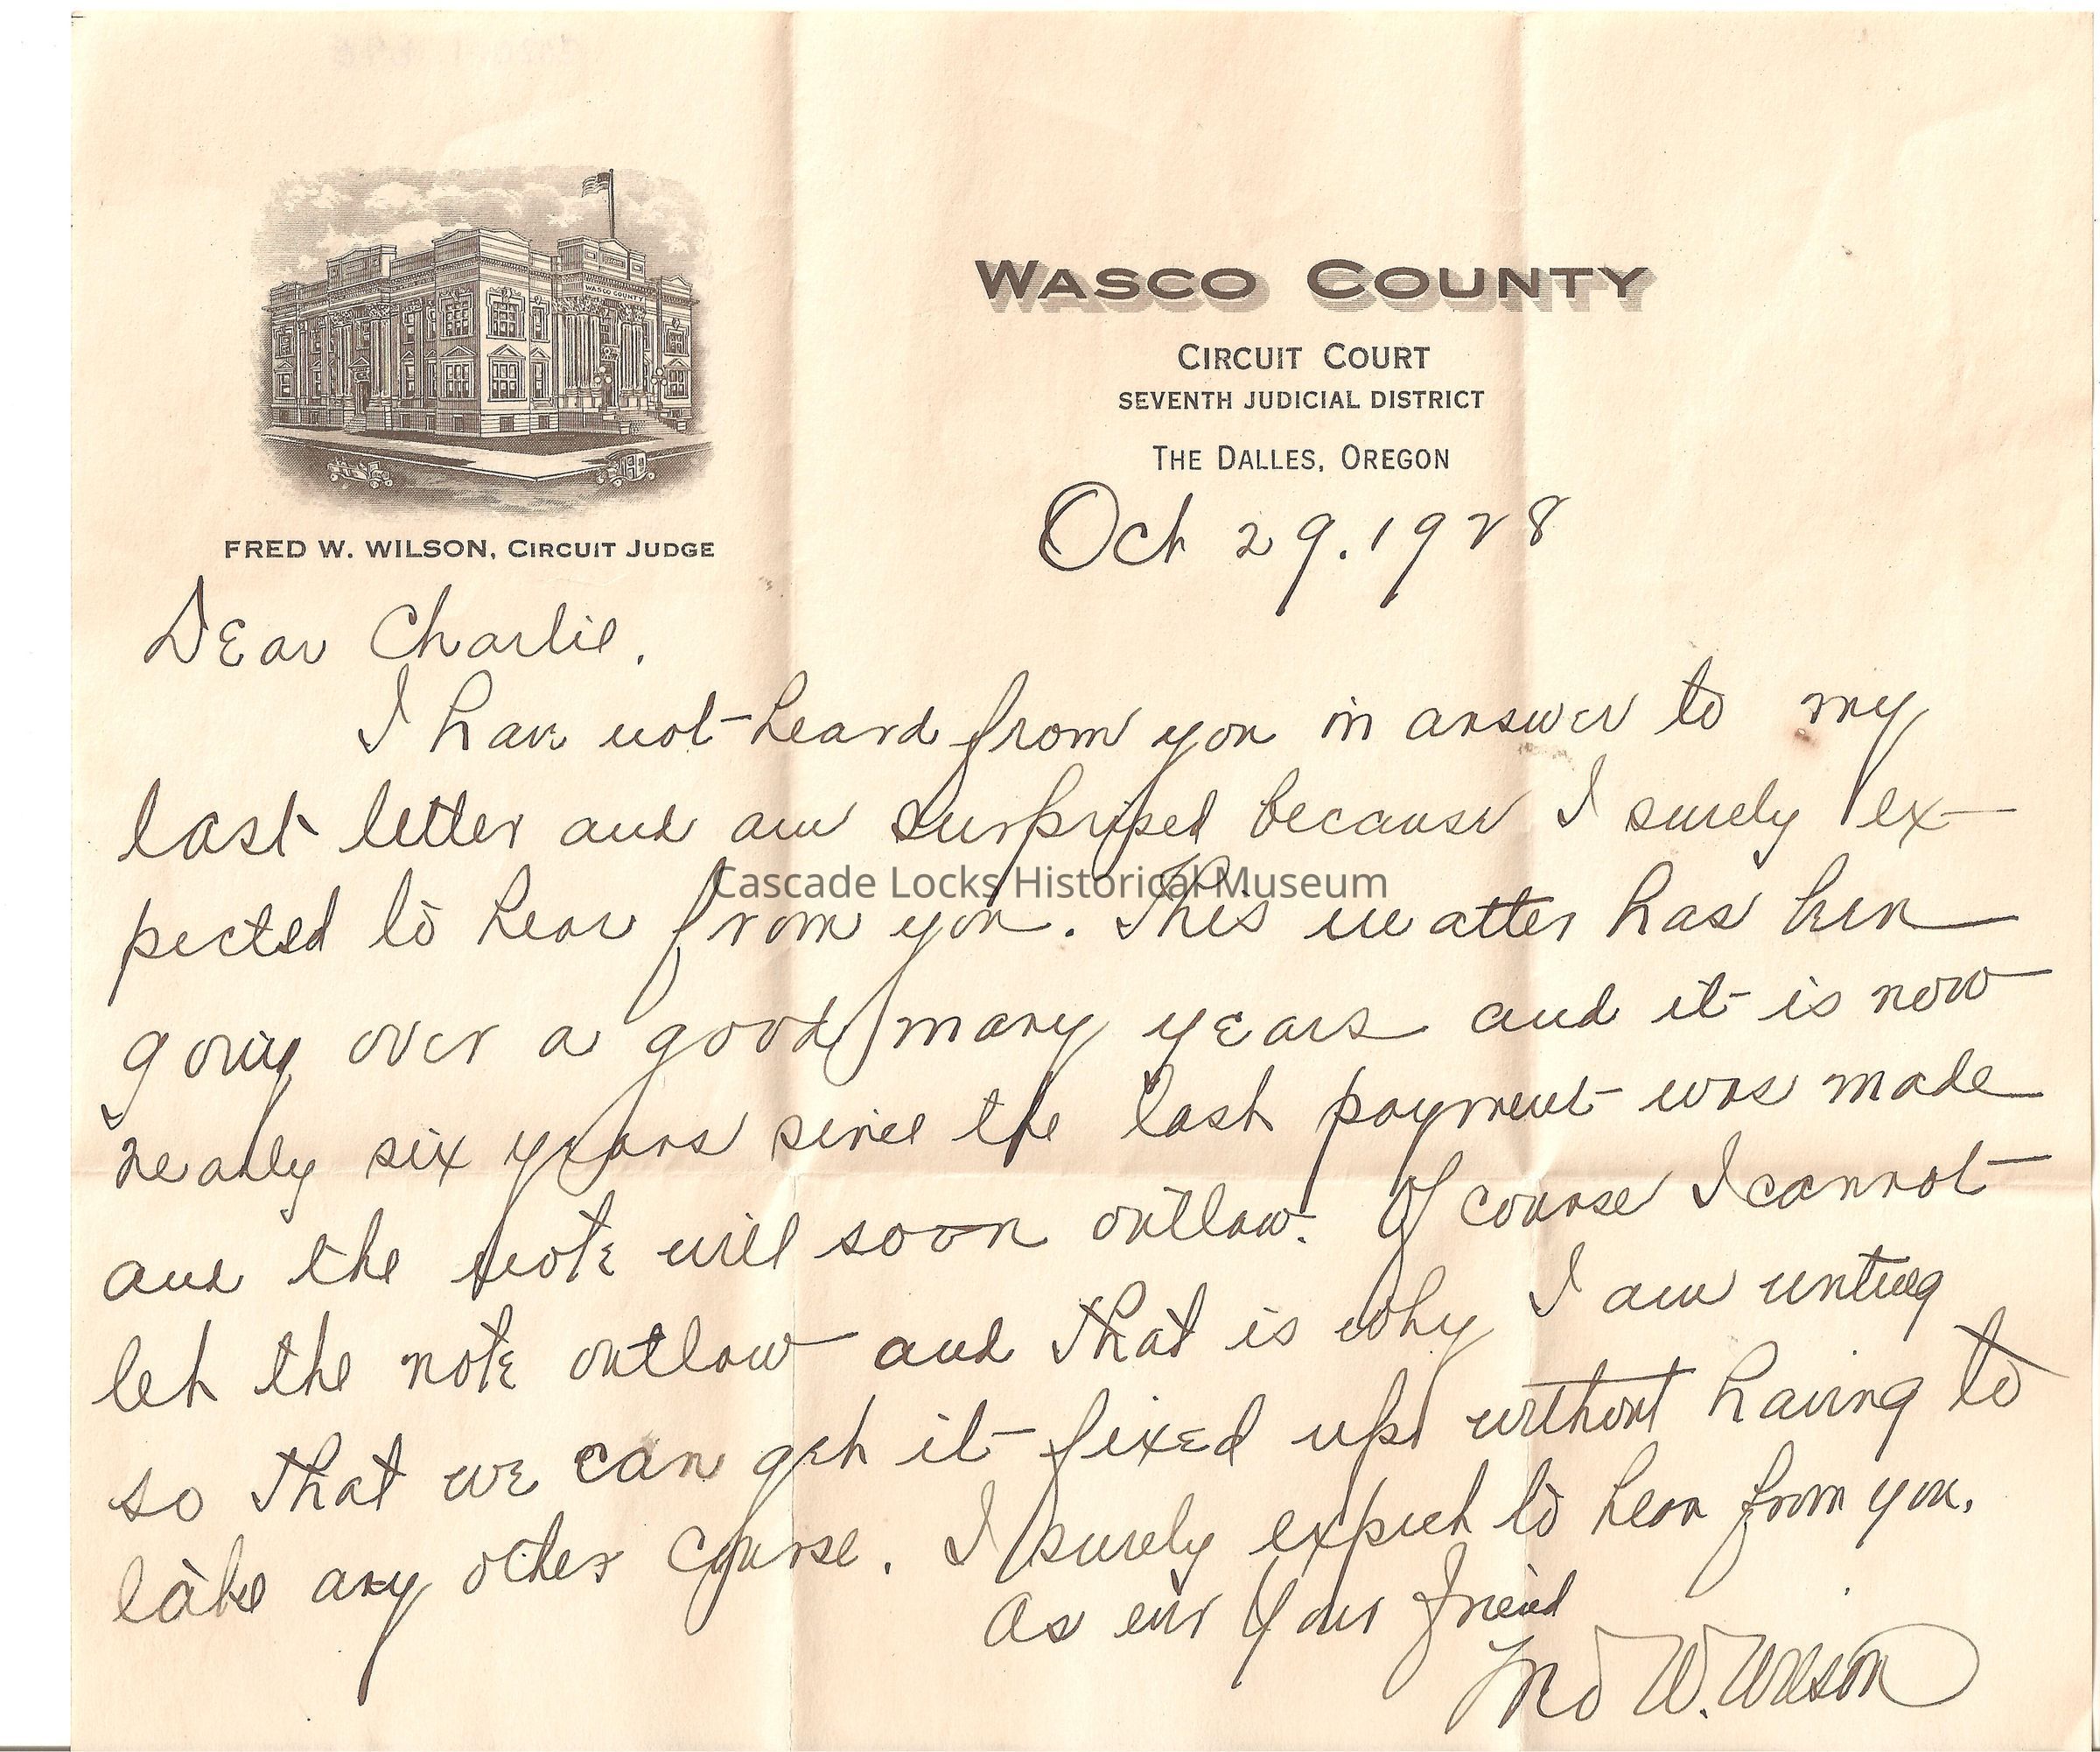 WASCO COUNTY
WASCO COUNTY
CIRCUIT COURT
SEVENTH JUDICIAL DISTRICT
THE DALLES, OREGON
FRED W. WILSON, CIRCUIT JUDGE
Oct 29. 1928
Dear Charlie.
I have not heard from you in answer to my
last letter and am surprised because I surely ex-
pected to hear from you. This matter has been
Cascade Locks Historical Museum
going over a good many years and it is now
nearly six years since the last payment was made
and the note will soon outlaw. Of course I cannot
let the note outlaw and that is why I am writing
so that we can get it fixed up without having to
take any other course. I surely expect to hear from you.
As ever Your friend
Fred W. Wilson